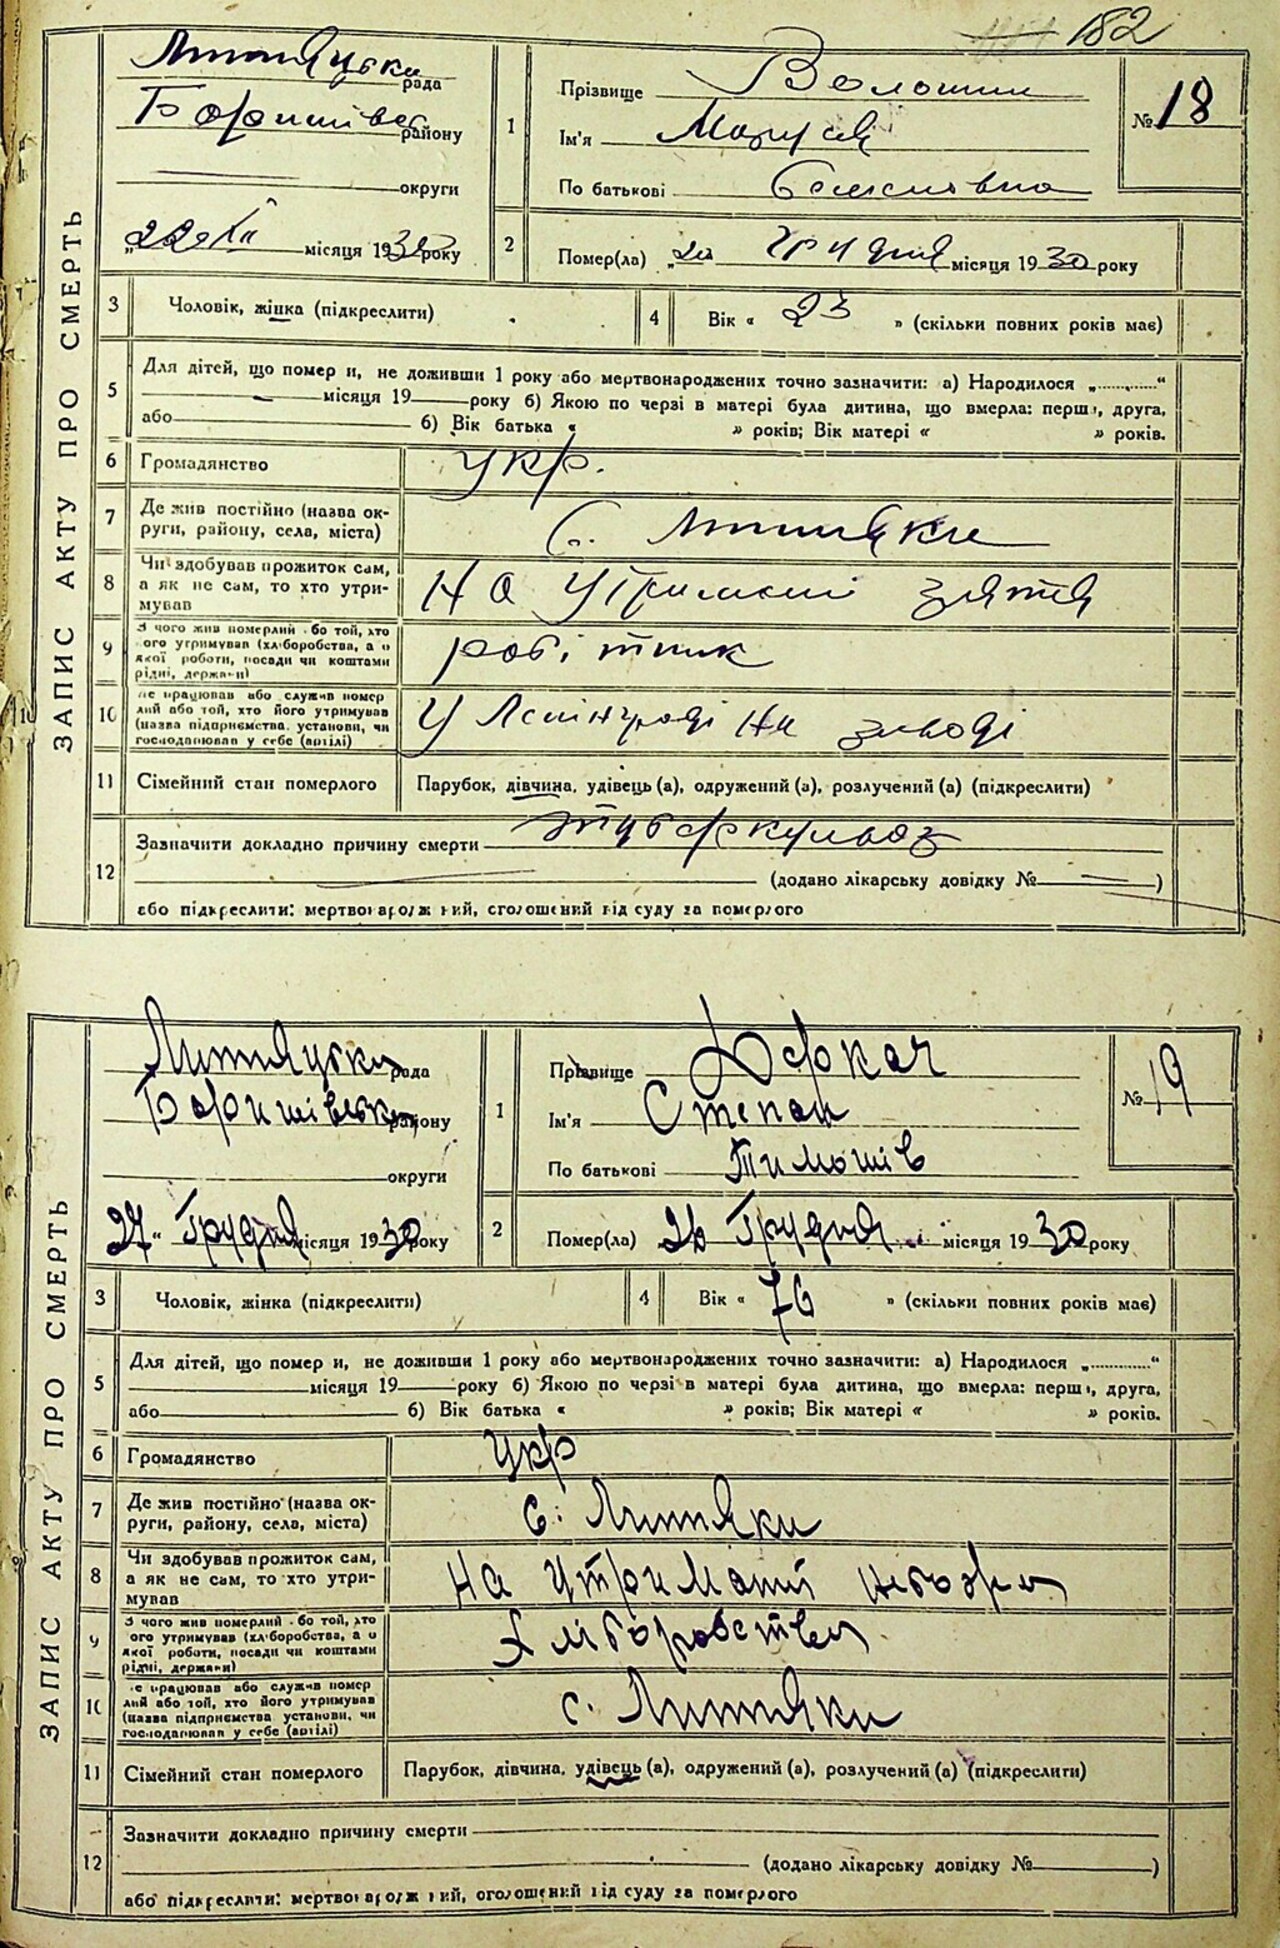 182
ЗАПИС АКТУ ПРО СМЕРТЬ
рада
району
округи
„22" XII місяця 1930 року
1
Прізвище Волошин
Ім'я
По батькові
№ 18
2
Помер(ла) „ грудня місяця 1930 року
3
Чоловік, жінка (підкреслити)
4
Вік « 23 » (скільки повних років має)
5
Для дітей, що помер и, не доживши 1 року або мертвонароджених точно зазначити: а) Народилося „............“
місяця 19 року б) Якою по черзі в матері була дитина, що вмерла: перша, друга,
або б) Вік батька « » років; Вік матері « » років.
6
Громадянство
укр.
7
Де жив постійно (назва ок-
руги, району, села, міста)
С. Литняки
8
Чи здобував прожиток сам,
а як не сам, то хто утри-
мував
На утриманні зятя
9
З чого жив померлий або той, хто
ого утримував (хліборобства, а о
якої роботи, посади чи коштами
рідні, держави)
робітник
10
де працював або служив помер
лий або той, хто його утримував
(назва підприємства, установи, чи
господарював у себе (артілі)
У Ленінграді на заводі
11
Сімейний стан померлого
Парубок, дівчина, удівець (а), одружений (а), розлучений (а) (підкреслити)
12
Зазначити докладно причину смерти туберкульоз
(додано лікарську довідку № )
або підкреслити: мертвонароджений, оголошений від суду за померлого
ЗАПИС АКТУ ПРО СМЕРТЬ
рада
району
округи
27 " Грудня місяця 1930 року
1
Прізвище Деркач
Ім'я Степан
По батькові Тимошів
№ 19
2
Помер(ла) 26 Грудня місяця 1930 року
3
Чоловік, жінка (підкреслити)
4
Вік « 76 » (скільки повних років має)
5
Для дітей, що помер и, не доживши 1 року або мертвонароджених точно зазначити: а) Народилося „............“
місяця 19 року б) Якою по черзі в матері була дитина, що вмерла: перша, друга,
або б) Вік батька « » років; Вік матері « » років.
6
Громадянство
Укр
7
Де жив постійно (назва ок-
руги, району, села, міста)
с. Литняки
8
Чи здобував прожиток сам,
а як не сам, то хто утри-
мував
На утриманні
9
З чого жив померлий або той, хто
ого утримував (хліборобства, а о
якої роботи, посади чи коштами
рідні, держави)
Хліборобства
10
де працював або служив помер
лий або той, хто його утримував
(назва підприємства установи, чи
господарював у себе (артілі)
с. Литняки
11
Сімейний стан померлого
Парубок, дівчина, удівець (а), одружений (а), розлучений (а) (підкреслити)
12
Зазначити докладно причину смерти
(додано лікарську довідку № )
або підкреслити: мертвонароджений, оголошений від суду за померлого